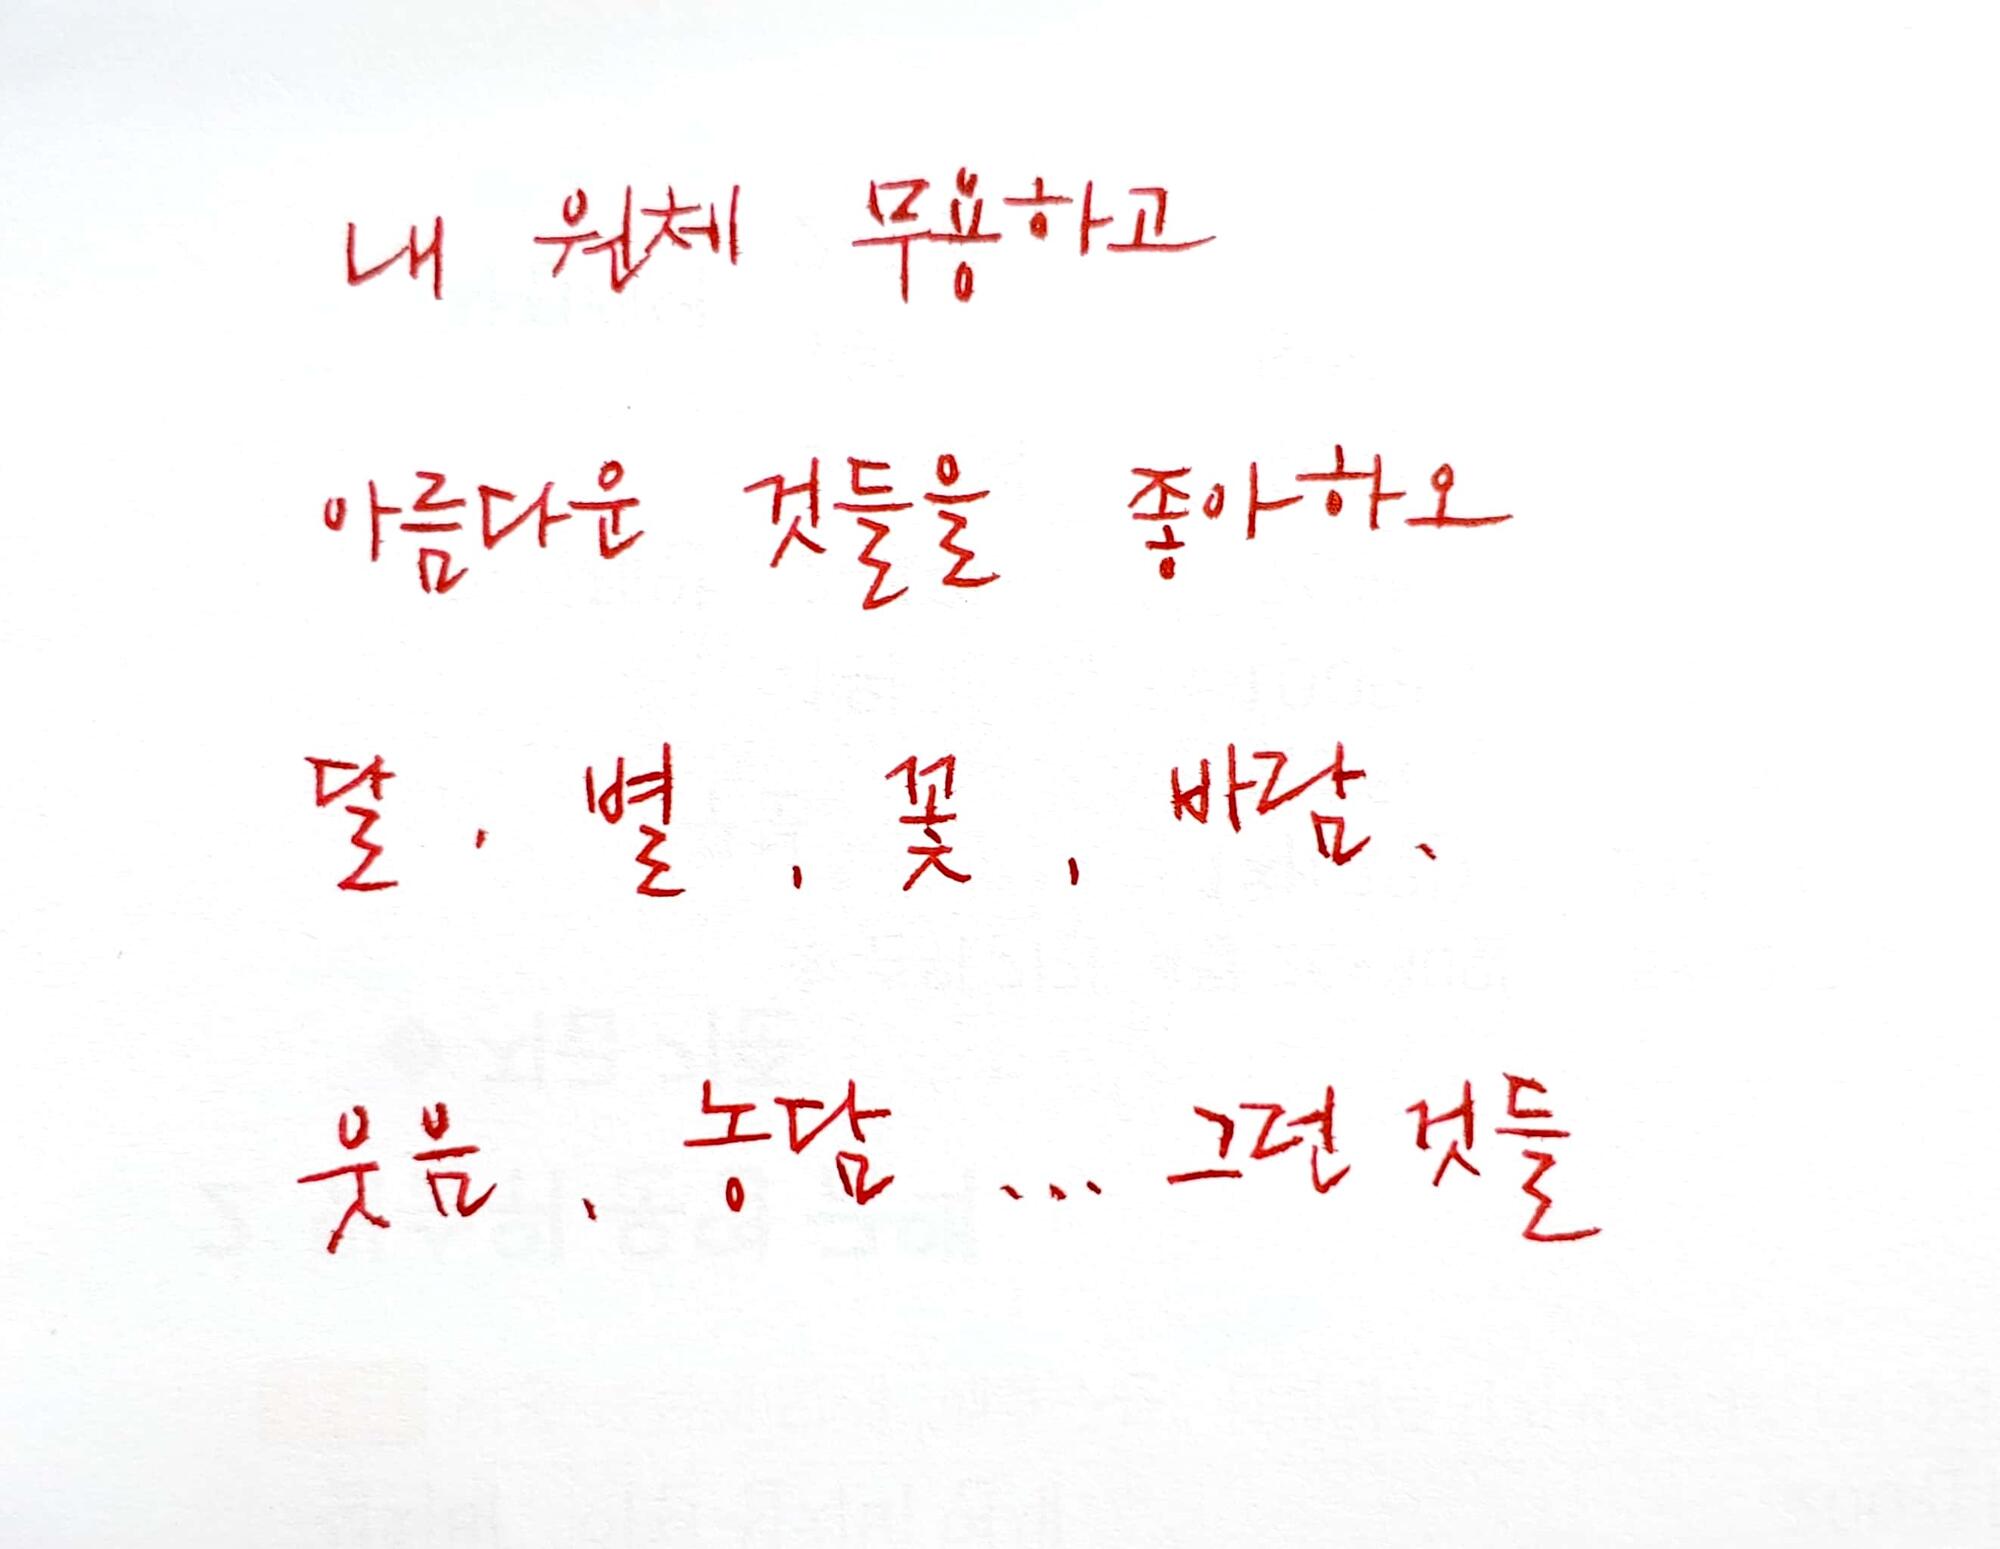 내 원체 무용하고
아름다운 것들을 좋아하오
달, 별, 꽃, 바람,
웃음, 농담...그런 것들